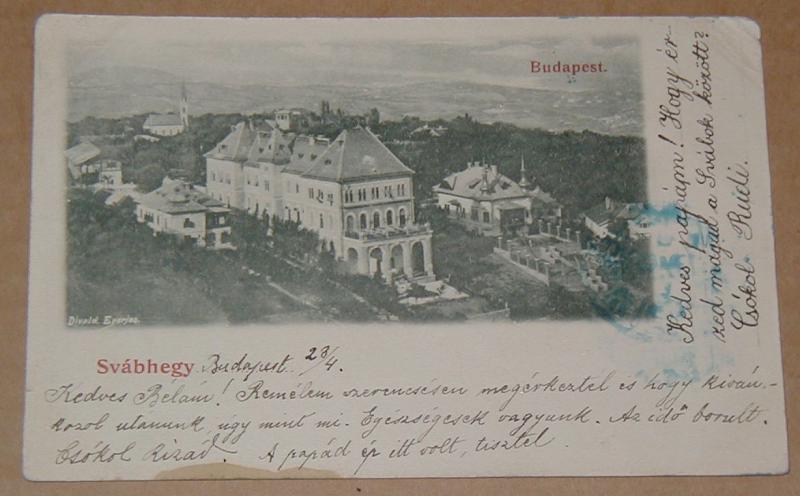 Budapest.
Kedves papám! Hogy ér-
zed magad a Svábok között?
Csókol Rudi.
Divald Eperjes.
Svábhegy
Budapest. 23/4.
Kedves Bélám! Remélem szerencsésen megérkeztél és hogy kiván-
kozol utánunk, úgy mint mi. Egészségesek vagyunk. Az idő borult.
Csókol Rizád. A papád ép itt volt, tisztel.